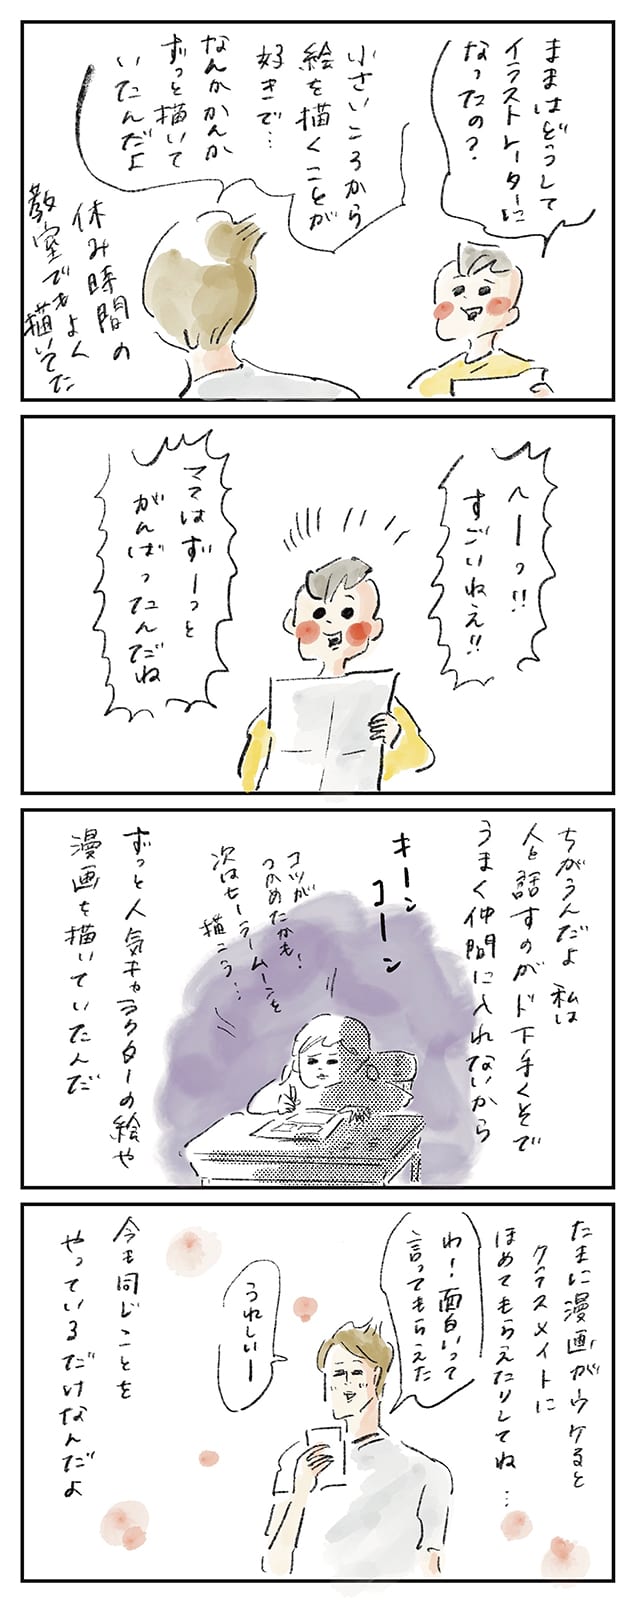 ままはどうして
イラストレーターに
なったの？
小さいころから
絵を描くことが
好きで…
なんかかんか
ずっと描いて
いたんだよ
休み時間の
教室でもよく
描いてた
へーっ!!
すごいねえ!!
ママはずーっと
がんばったんだね
ちがうんだよ 私は
人と話すのがド下手くそで
うまく仲間に入れないから
キーン
コーン
コツが
つかめたかも!
次はセーラームーンを
描こう…
ずっと人気キャラクターの絵や
漫画を描いていたんだ
たまに漫画がウケると
クラスメイトに
ほめてもらえたりしてね…
わー!面白いって
言ってもらえた
うれしいー
今も同じことを
やっているだけなんだよ